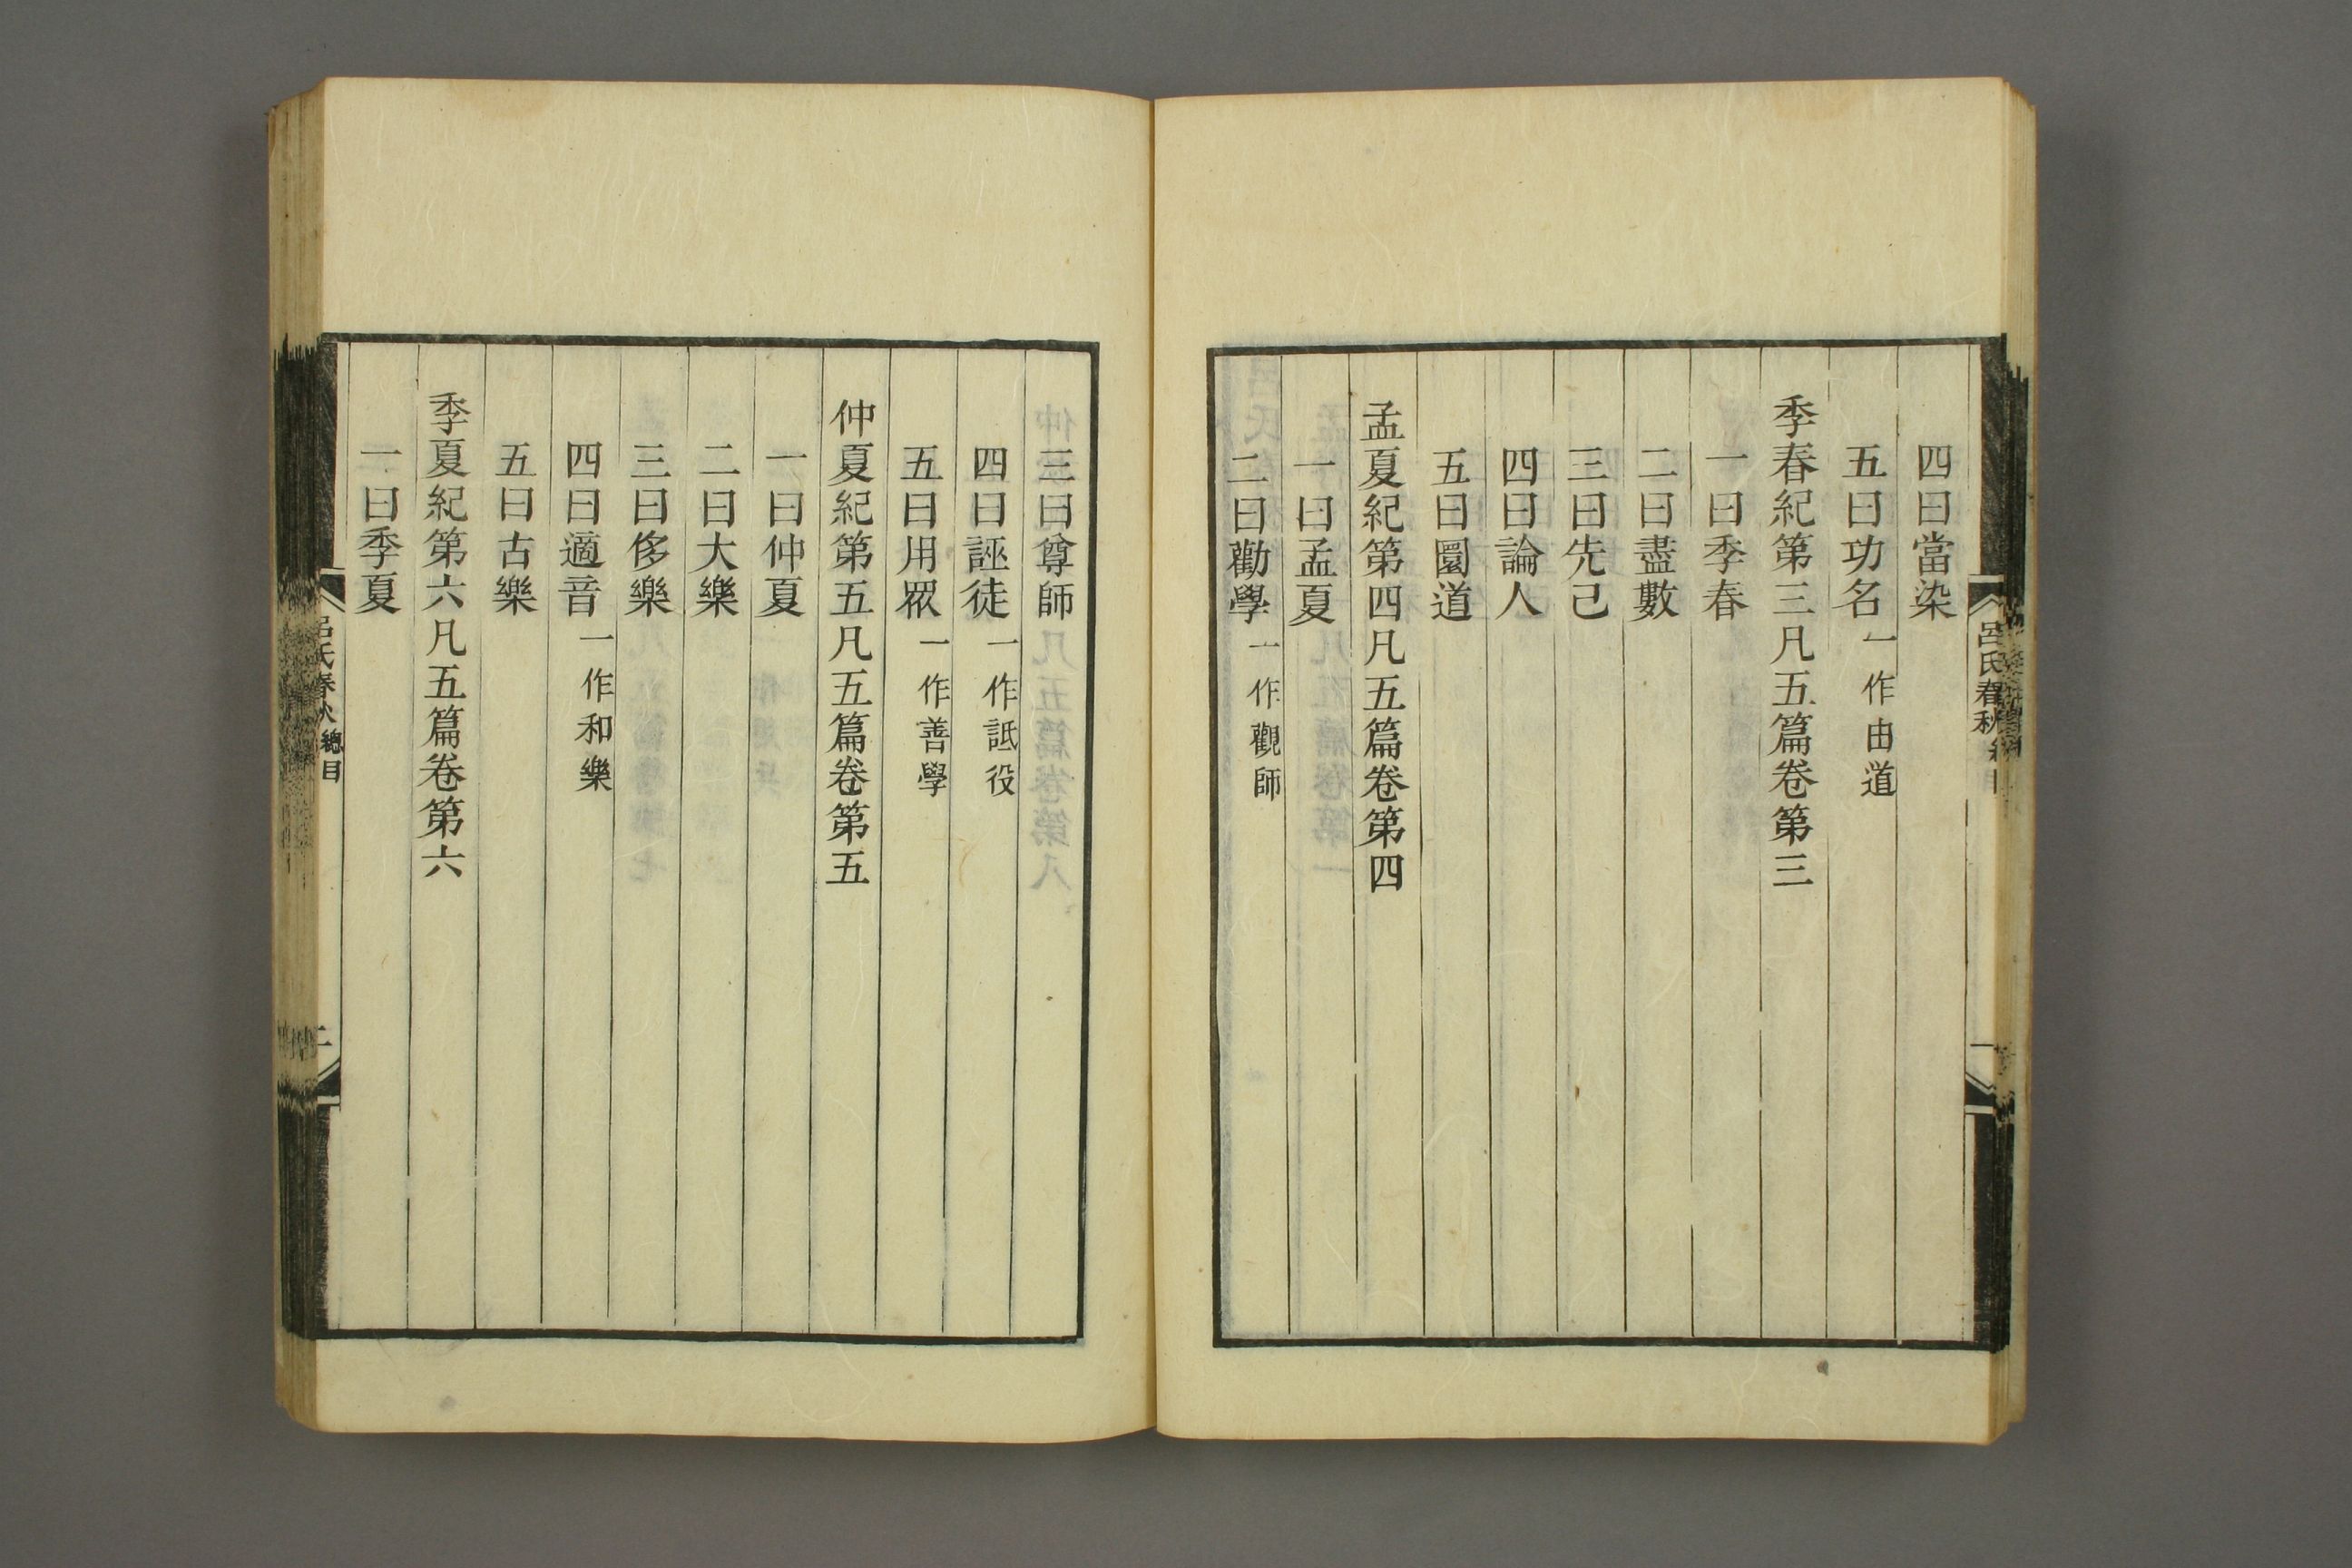 四曰當染
五曰功名一作由道
季春紀第三凡五篇卷第三
一曰季春
二曰盡數
三曰先己
四曰論人
五曰圜道
孟夏紀第四凡五篇卷第四
一曰孟夏
二曰勸學一作觀師
三曰尊師
四曰誣徒一作詆役
五曰用眾一作善學
仲夏紀第五凡五篇卷第五
一曰仲夏
二曰大樂
三曰侈樂
四曰適音一作和樂
五曰古樂
季夏紀第六凡五篇卷第六
一曰季夏
呂氏春秋
呂氏春秋總目